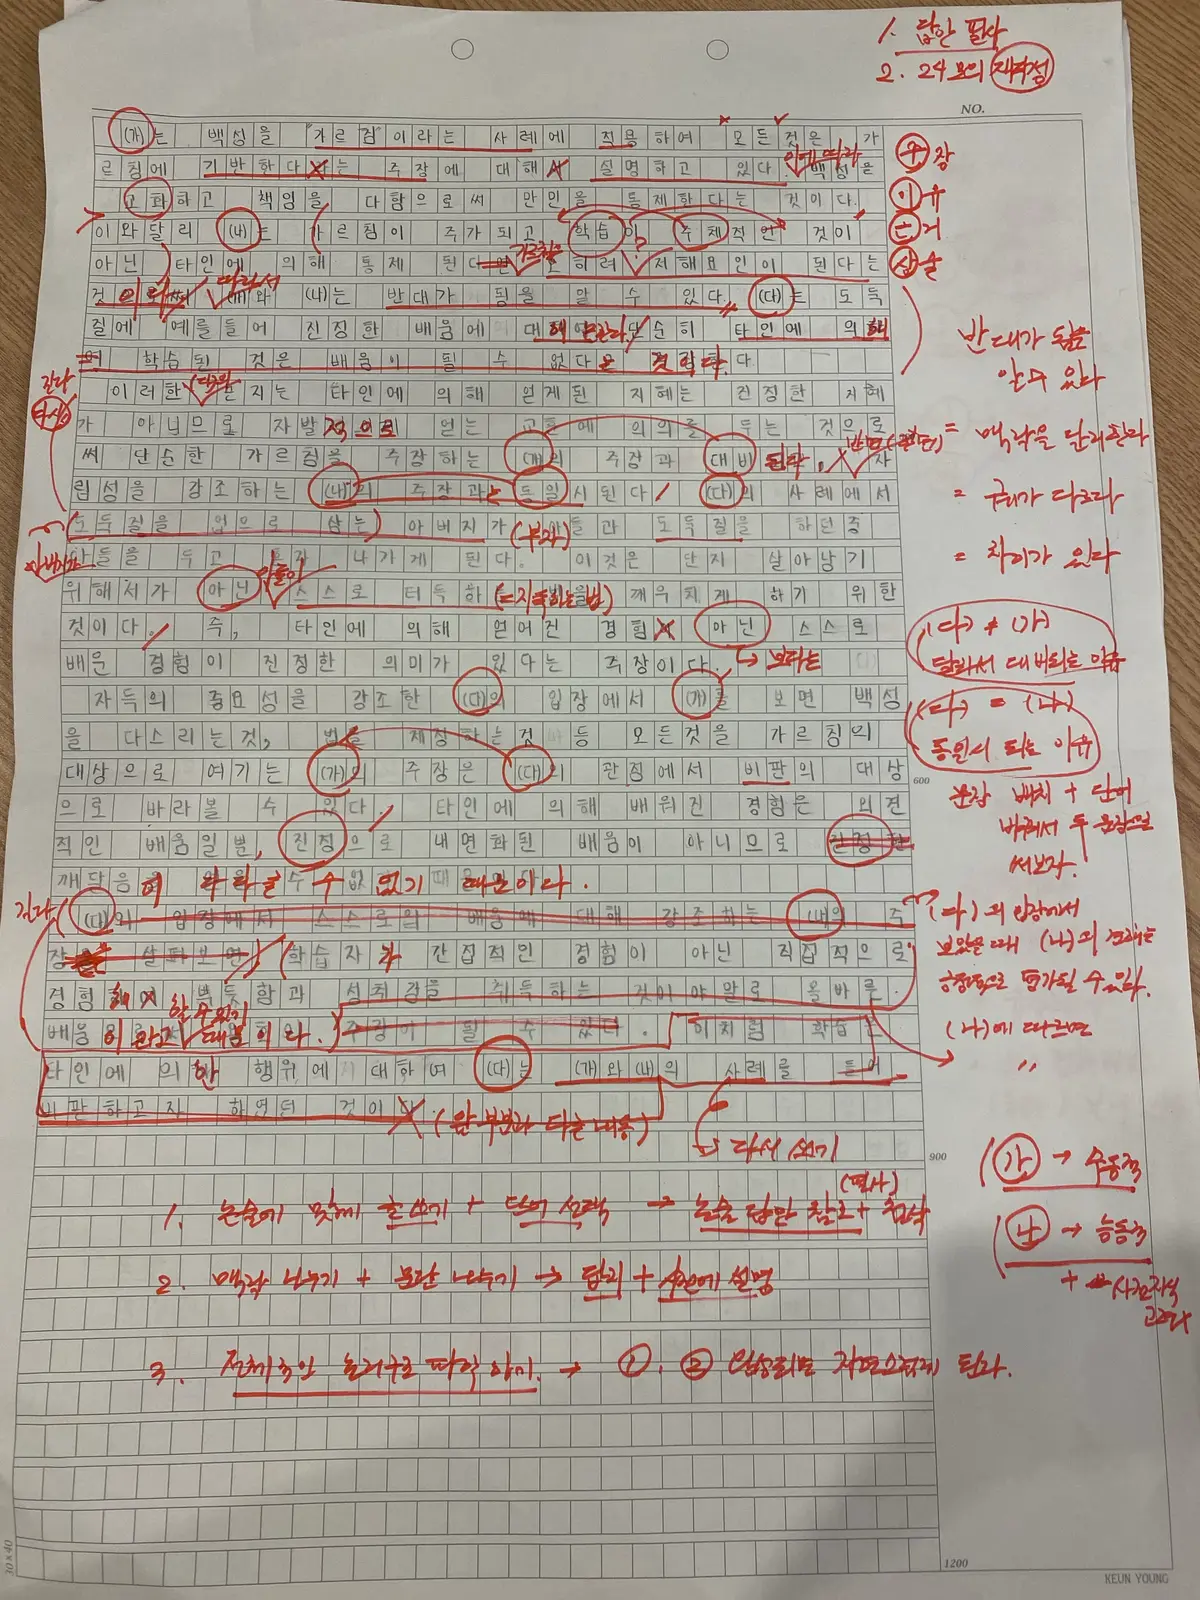 1. 답안 필사
2. 24모의 재작성
NO.
(가)는 백성을 "가르침"이라는 사례에 적용하여 모든 것은 가
르침에 기반한다 는 주장에 대해 설명하고 있다. 백성을
교화하고 책임을 다함으로써 만인을 통제한다는 것이다.
이와달리 (나)는 가르침이 주가 되고 학습이 주체적인 것이
아닌 타인에 의해 통제 된다 오히려 저해요인이 된다는
것 따라서 (가)와 (나)는 반대가 됨을 알 수 있다. (다)는 도둑
질에 예를들어 진정한 배움에 대해 단순히 타인에 의해
학습된 것은 배움이 될 수 없다
이러한 는 타인에 의해 얻게된 지혜는 진정한 지혜
가 아니므로 자발적으로 얻는 교훈에 의의를 두는 것으로
써 단순한 가르침을 주장하는 (가)의 주장과 대비 된다. 자
립성을 강조하는 (나)의 주장과는 동일시된다. (다)의 사례에서
도둑질을 업으로 삼는 아버지가 들과 도둑질을 하던중
아들을 두고 혼자 나가게 된다. 이것은 단지 살아남기
위해서가 아닌 스스로 터득하 깨우치게 하기 위한
것이다. 즉, 타인에 의해 얻어진 경험 아닌 스스로
배운 경험이 진정한 의미가 있다는 주장이다.
자득의 중요성을 강조한 (다)의 입장에서 (가)를 보면 백성
을 다스리는것, 법을 제정하는것 등 모든것을 가르침의
대상으로 여기는 (가)의 주장은 (다)의 관점에서 비판의 대상
600
으로 바라볼 수 있다. 타인에 의해 배워진 경험은 외견
적인 배움일뿐, 진정으로 내면화된 배움이 아니므로 진정한
깨달음 수 없기 때문이다.
(다)의 입장에서 스스로의 배움에 대해 강조하는 (나)의 주
장을 살펴보면, 학습자가 간접적인 경험이 아닌 직접적으로
경험 뿌듯함과 성취감을 취득하는 것이야말로 올바른
배움이라고 할 수 있기 때문이다. 주장이 될 수 있다. 이처럼 학습은
타인에 의한 행위에 대하여 (다)는 (가)와 (나)의 사례를 들어
비판하고자 하였던 것이다.
900
주장
이유
근거
상술
반대가 됨을
알수 있다
= 맥락을 달리한다
= 궤가 다르다
= 차이가 있다
(다) ≠ (가)
달라서 대비되는 이유
(다) = (나)
동일시 되는 이유
문장 배치 + 단어
바꿔서 두 문장으로
써보자.
(다)의 입장에서
보았을때 (나)의 견해는
긍정적으로 평가될 수 있다.
(나)에 따르면
〃
(앞 부분과 다른 내용)
다시 쓰기
가 → 수동적
나 → 능동적
1. 논술에 맞게 글쓰기 + 단어 선택 → 논술 답안 참고 + 첨삭
(필사)
2. 맥락 나누기 + 문단 나누기 → 논리 + 설명
3. 전체적인 논리구조 파악 하기. → ①, ② 완성되면 자연스럽게 된다.
30×40
1200
KEUN YOUNG